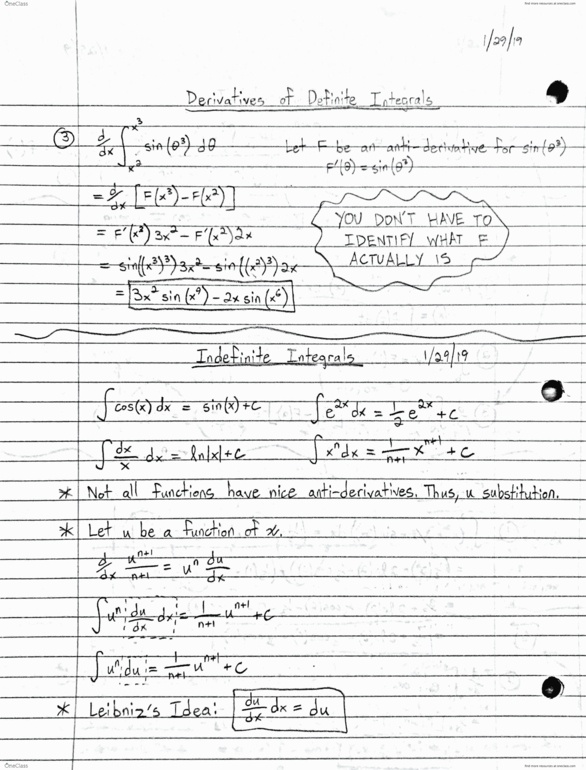 OneClass
find more resources at oneclass.com
1/29/19
Derivatives of Definite Integrals
③ d/dx ∫_{x²}^{x³} sin(θ³) dθ
Let F be an anti-derivative for sin(θ³)
F'(θ) = sin(θ³)
= d/dx [F(x³) - F(x²)]
= F'(x³) 3x² - F'(x²) 2x
= sin((x³)³) 3x² - sin((x²)³) 2x
= 3x² sin(x⁹) - 2x sin(x⁶)
YOU DON'T HAVE TO
IDENTIFY WHAT F
ACTUALLY IS
Indefinite Integrals 1/29/19
∫cos(x) dx = sin(x) + C ∫e^{2x} dx = 1/2 e^{2x} + C
∫ dx/x dx = ln|x| + C ∫x^n dx = 1/(n+1) x^{n+1} + C
* Not all functions have nice anti-derivatives. Thus, u substitution.
* Let u be a function of x.
d/dx u^{n+1}/(n+1) = u^n du/dx
∫u^n du/dx dx = 1/(n+1) u^{n+1} + C
∫u^n du = 1/(n+1) u^{n+1} + C
* Leibniz's Idea: du/dx dx = du
OneClass
find more resources at oneclass.com